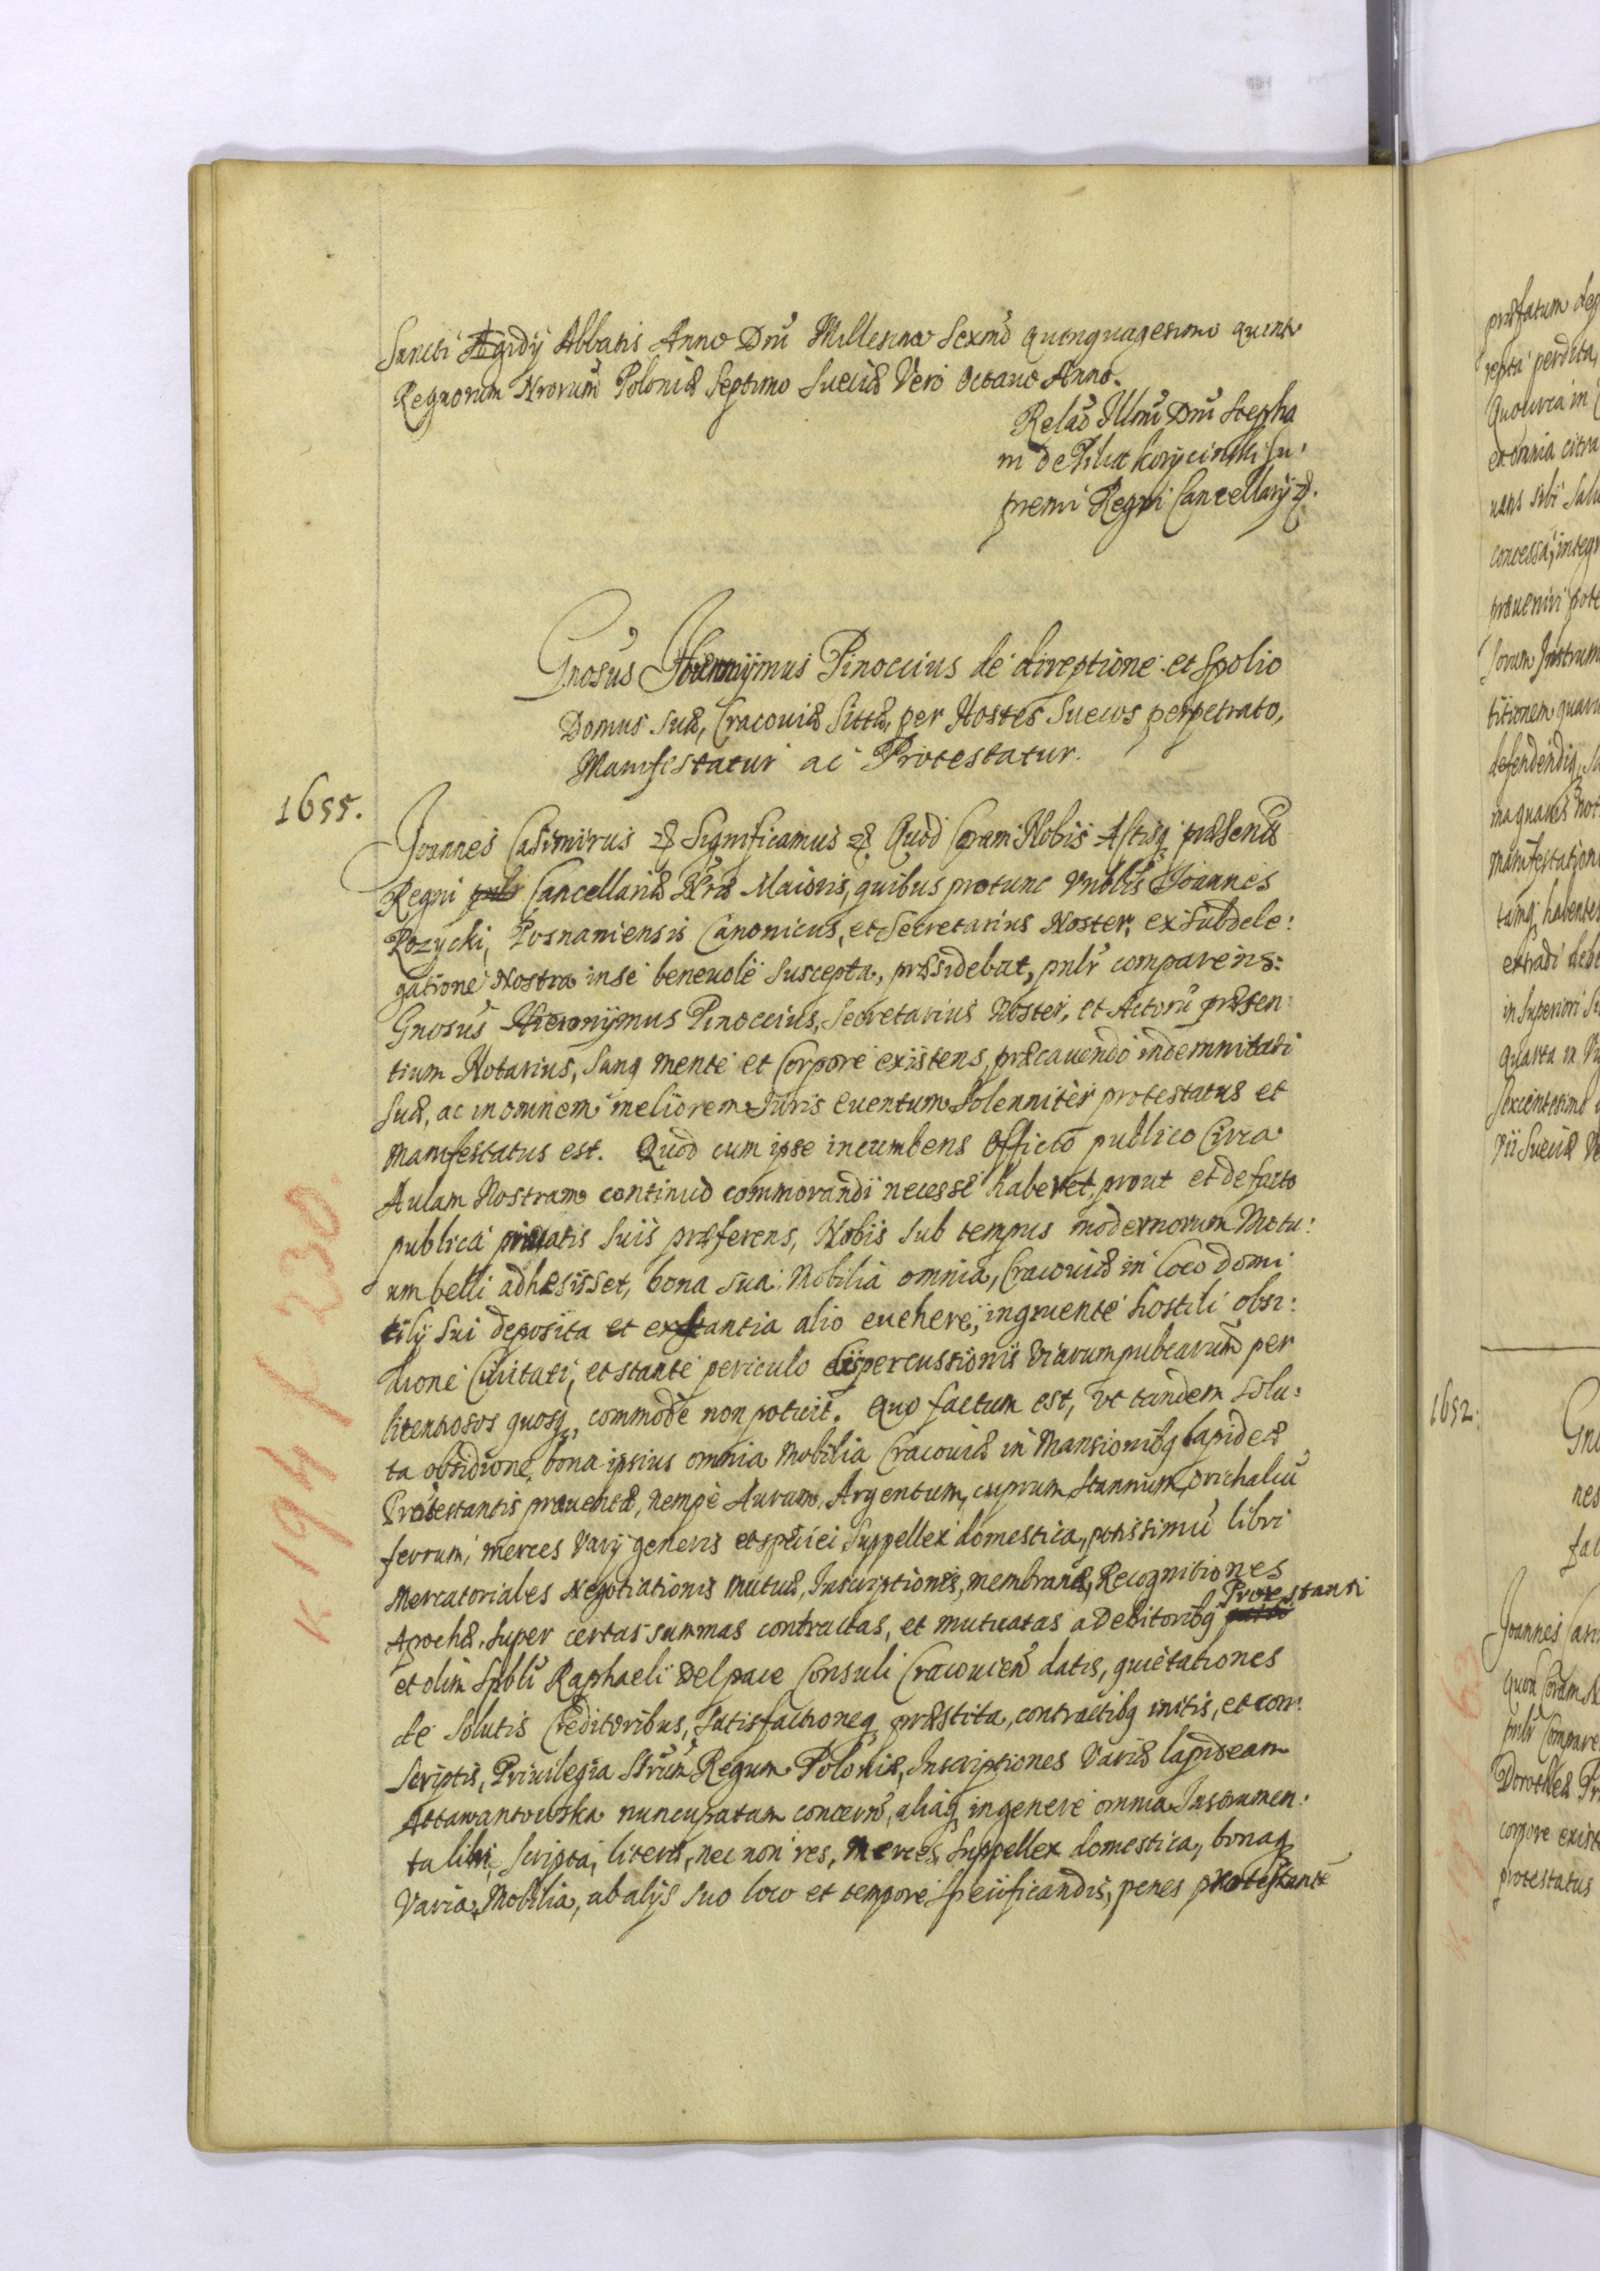 Sancti Ægidÿ Abbatis Anno Dni Millesimo Sexmo quinquagesimo quinto
Regnorum Nrorum Poloniæ Septimo Sueciæ Vero Octauo Anno.
Relao Illmi Dni Stepha
ni de Pilca Korycinski Su:
premi Regni Cancellarÿ &.
Gnosus Hieronymus Pinoccius de direptione et Spolio
Domus suæ, Cracouiæ Sittæ, per Hostes Suecos perpetrato,
Manifestatur ac Protestatur.
1655.
Joannes Casimirus & Significamus & Quod Coram Nobis Actisq præsentib
Regni Cancellariæ Nræ Maioris, quibus protunc Vnblis Joannes
Rozycki, Posnaniensis Canonicus, et Secretarius Noster, ex Subdele:
gatione Nostra in se beneuole suscepta, præsidebat, pnlr comparens
Gnosus Hieronymus Pinoccius, Secretarius Noster, et Actoru præsen
tium Notarius, sanq mente et Corpore existens, præcauendo indemnitati
suæ, ac in omnem meliorem Juris euentum Solenniter protestatus et
manifestatus est. Quod cum ipse incumbens Officio publico Circa
Aulam Nostram continuo commorandi necesse haberet, prout et de facto
publica priuatis suis præferens, Nobis sub tempus modernorum Motu:
um belli adhæsisset, bona sua Mobilia omnia, Cracouiæ in Loco domi
cilÿ sui deposita et exstantia alio euehere, ingruente hostili obsi:
dione Ciuitati, et stante periculo Viarum pubcarum per
licentiosos quosq, commode non potuit. Quo factum est, vt tandem solu:
ta obsidione, bona ipsius omnia Mobilia Cracouiæ in Mansionibq lapideæ
Protestantis prouentæ, nempe Aurum, Argentum, cuprum, stannum, orichalcu
ferrum, merces Varÿ generis et speciei Suppellex domestica, potissimu libri
Mercatoriales Negotiationis Mutuæ, Inscriptiones, membranæ, Recognitiones
Apochæ, super certas summas contractas, et mutuatas a Debitoribq Protestanti
et olim Spbli Raphaeli Delpace Consuli Cracouien datis, quietationes
de solutis Creditoribus, Satisfactioneq præstita, contractibq initis, et con:
scriptis, Priuilegia Srum Regum Poloniæ, Inscriptiones Variæ lapideam
Attawantowska nuncupatam concern, aliaq in genere omnia Instrumen:
ta libri, scripta, literæ, nec non res, merces, Suppellex domestica, bonaq
Varia, Mobilia, ab alÿs suo loco et tempore specificandis, penes protestante
K 194 / 230.
præfatum
perdita,
in
omnia citra
sibi
concessa, integr
præueniri
Jorum Instrum
titionem
defendendiq,
manifestation
tamq habentes
extradi debe
in superiori
quarta
sexcentesimo
Sueciæ Ve
1652.
Gn
nes
fa
Joannes Casi
quod Coram
pnlr Compare
Dorotheæ Pr
corpore exist
protestatus